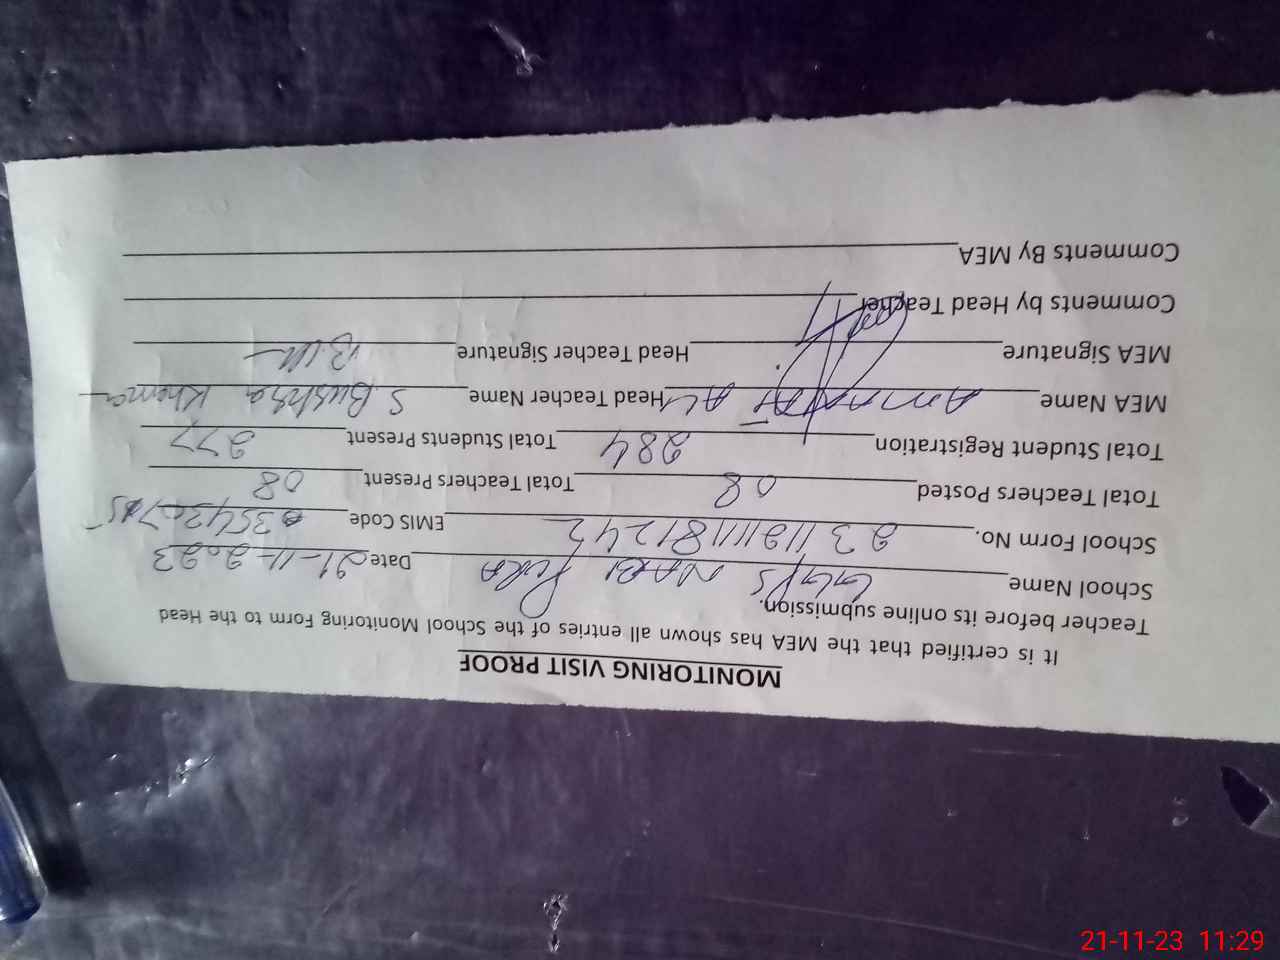 MONITORING VISIT PROOF
It is certified that the MEA has shown all entries of the School Monitoring Form to the Head
Teacher before its online submission.
School Name GGPS NABI PURA Date 21-11-2023
School Form No. EMIS Code
Total Teachers Posted 08 Total Teachers Present 08
Total Student Registration 284 Total Students Present 277
MEA Name Head Teacher Name S. Bushra
MEA Signature Head Teacher Signature
Comments by Head Teacher
Comments By MEA
21-11-23 11:29